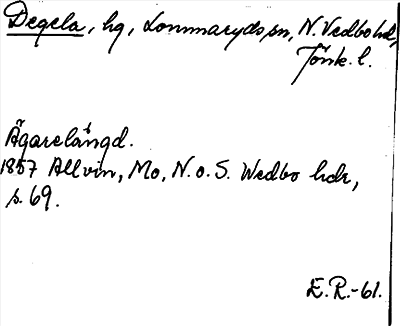 Degela, hg, Lommaryds sn, N. Vedbo hd,
Jönk. l.
Ägarelängd.
1857 Allvin, Mo, N. o. S. Wedbo hdr,
s. 69.
E.R.-61.